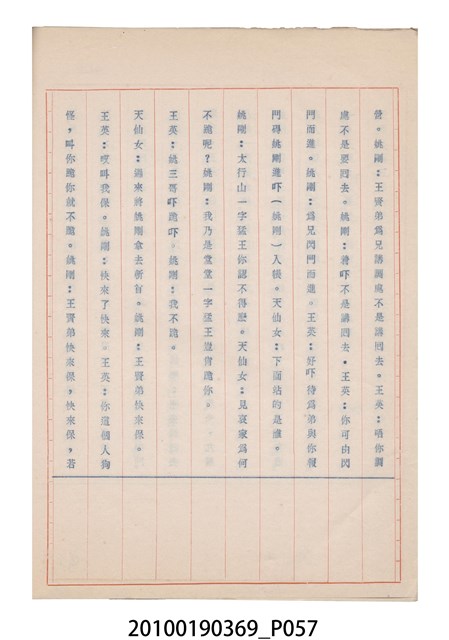 營。姚剛：王賢弟為兄講調處不是講囘去。王英：唔你調
處不是要囘去。姚剛：着吓不是講囘去。王英：你可由閃
門而進。姚剛：為兄閃門而進。王英：好吓待為弟與你報
門得姚剛進吓（姚剛）入後。天仙女：下面站的是誰。
姚剛：太行山一字猛王你認不得麽。天仙女：見哀家為何
不跪呢？姚剛：我乃是堂堂一字猛王豈肯跪你。
王英：姚三哥吓跪吓。姚剛：我不跪。
天仙女：過來將姚剛拿去斬首。姚剛：王賢弟快來保。
王英：哎叫我保。姚剛：快來了快來。王英：你這個人狗
怪，叫你跪你就不跪。姚剛：王賢弟快來保，快來保，若
20100190369_P057